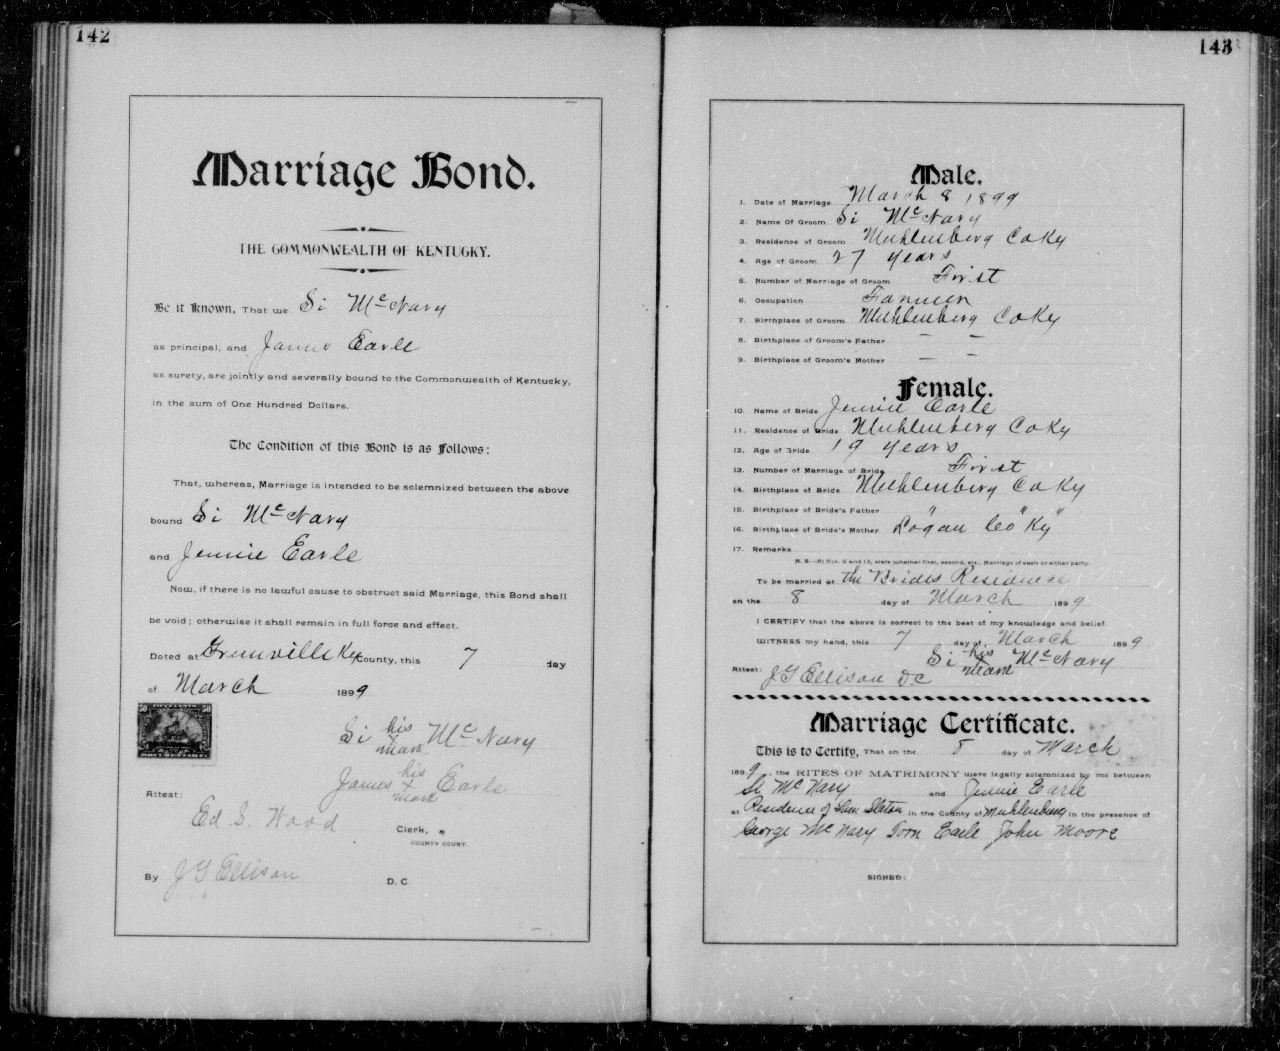 142
Marriage Bond.
THE COMMONWEALTH OF KENTUCKY.
Be it Known, That we Si McNary
as principal, and James Earle
as surety, are jointly and severally bound to the Commonwealth of Kentucky,
in the sum of One Hundred Dollars.
The Condition of this Bond is as Follows:
That, whereas, Marriage is intended to be solemnized between the above
bound Si McNary
and Jennie Earle
Now, if there is no lawful cause to obstruct said Marriage, this Bond shall
be void; otherwise it shall remain in full force and effect.
Dated at Greenville Ky County, this 7 day
of March 1899
FIFTY CENTS
50 50
DOCUMENTARY
Si his McNary
mark
James his Earle
mark
Attest:
Ed S. Wood
Clerk,
COUNTY COURT.
By J G Ellison D. C.
143
Male.
1. Date of Marriage March 8 1899
2. Name Of Groom Si McNary
3. Residence of Groom Muhlenberg Co Ky
4. Age of Groom 27 years
5. Number of Marriage of Groom First
6. Occupation Farmer
7. Birthplace of Groom Muhlenberg Co Ky
8. Birthplace of Groom's Father — —
9. Birthplace of Groom's Mother — —
Female.
10. Name of Bride Jennie Earle
11. Residence of Bride Muhlenberg Co Ky
12. Age of Bride 19 years
13. Number of Marriage of Bride First
14. Birthplace of Bride Muhlenberg Co Ky
15. Birthplace of Bride's Father " " "
16. Birthplace of Bride's Mother Logan Co Ky
17. Remarks
N. B.—At Nos. 5 and 13, state whether first, second, etc., Marriage of each or either party.
To be married at the Brides Residence
on the 8 day of March 1899
I CERTIFY that the above is correct to the best of my knowledge and belief.
WITNESS my hand, this 7 day of March 1899
Si his McNary
mark
Attest: J G Ellison D C
Marriage Certificate.
This is to Certify, That on the 8 day of March
1899, the RITES OF MATRIMONY were legally solemnized by me between
Si McNary and Jennie Earle
at Residence of Slaton in the County of Muhlenberg in the presence of
George McNary Tom Earle John Moore
SIGNED: